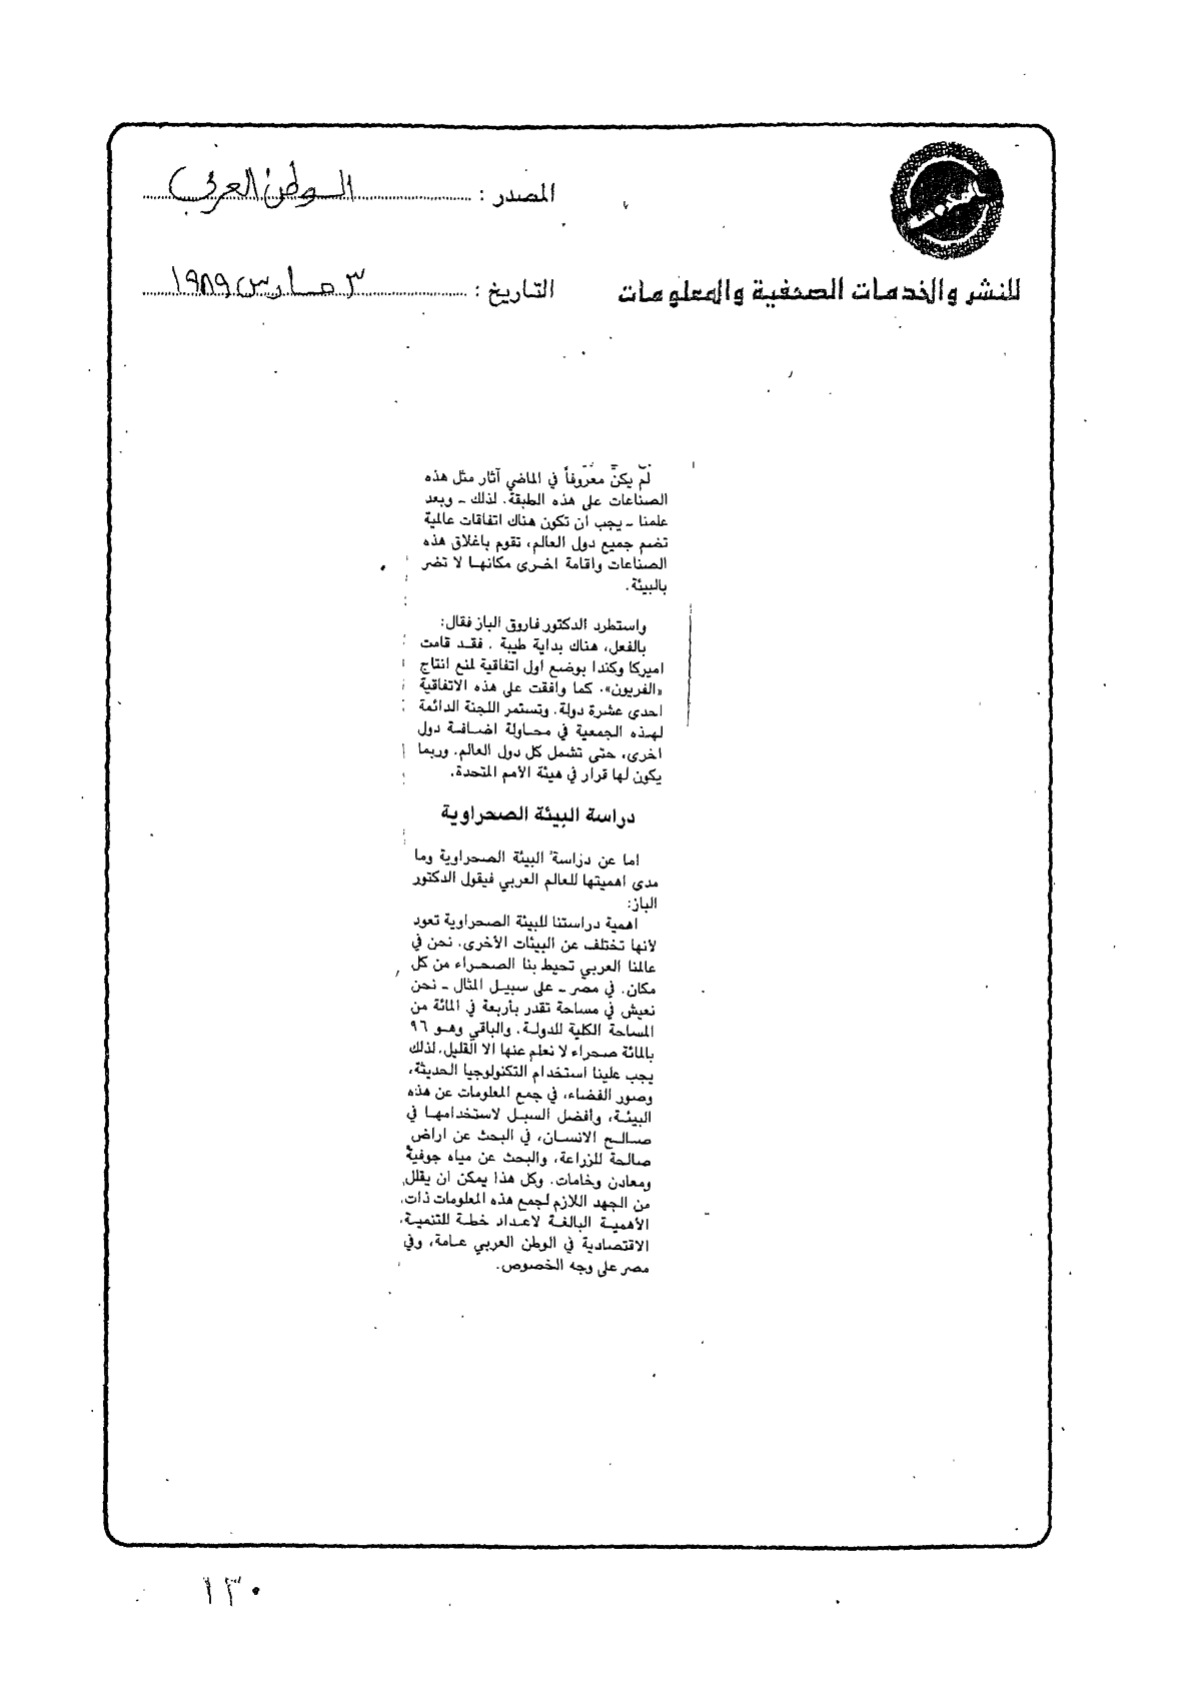 المصدر : الوطن العربي
للنشر والخدمات الصحفية والمعلومات
التاريخ : ٣ مارس ١٩٨٩
لم يكن معروفاً في الماضي آثار مثل هذه
الصناعات على هذه الطبقة. لذلك - وبعد
علمنا - يجب ان تكون هناك اتفاقات عالمية
تضم جميع دول العالم، تقوم باغلاق هذه
الصناعات واقامة اخرى مكانها لا تضر
بالبيئة.
واستطرد الدكتور فاروق الباز فقال:
بالفعل، هناك بداية طيبة . فقد قامت
اميركا وكندا بوضع اول اتفاقية لمنع انتاج
«الفريون». كما وافقت على هذه الاتفاقية
احدى عشرة دولة. وتستمر اللجنة الدائمة
لهذه الجمعية في محاولة اضافة دول
اخرى، حتى تشمل كل دول العالم. وربما
يكون لها قرار في هيئة الأمم المتحدة.
دراسة البيئة الصحراوية
اما عن دراسة البيئة الصحراوية وما
مدى اهميتها للعالم العربي فيقول الدكتور
الباز:
اهمية دراستنا للبيئة الصحراوية تعود
لأنها تختلف عن البيئات الأخرى. نحن في
عالمنا العربي تحيط بنا الصحراء من كل
مكان. في مصر - على سبيل المثال - نحن
نعيش في مساحة تقدر بأربعة في المائة من
المساحة الكلية للدولة. والباقي وهو ٩٦
بالمائة صحراء لا نعلم عنها الا القليل. لذلك
يجب علينا استخدام التكنولوجيا الحديثة،
وصور الفضاء، في جمع المعلومات عن هذه
البيئة، وأفضل السبل لاستخدامها في
صالح الانسان، في البحث عن اراض
صالحة للزراعة، والبحث عن مياه جوفية
ومعادن وخامات. وكل هذا يمكن ان يقلل
من الجهد اللازم لجمع هذه المعلومات ذات
الأهمية البالغة لاعداد خطة للتنمية
الاقتصادية في الوطن العربي عامة، وفي
مصر على وجه الخصوص.
١٣٠